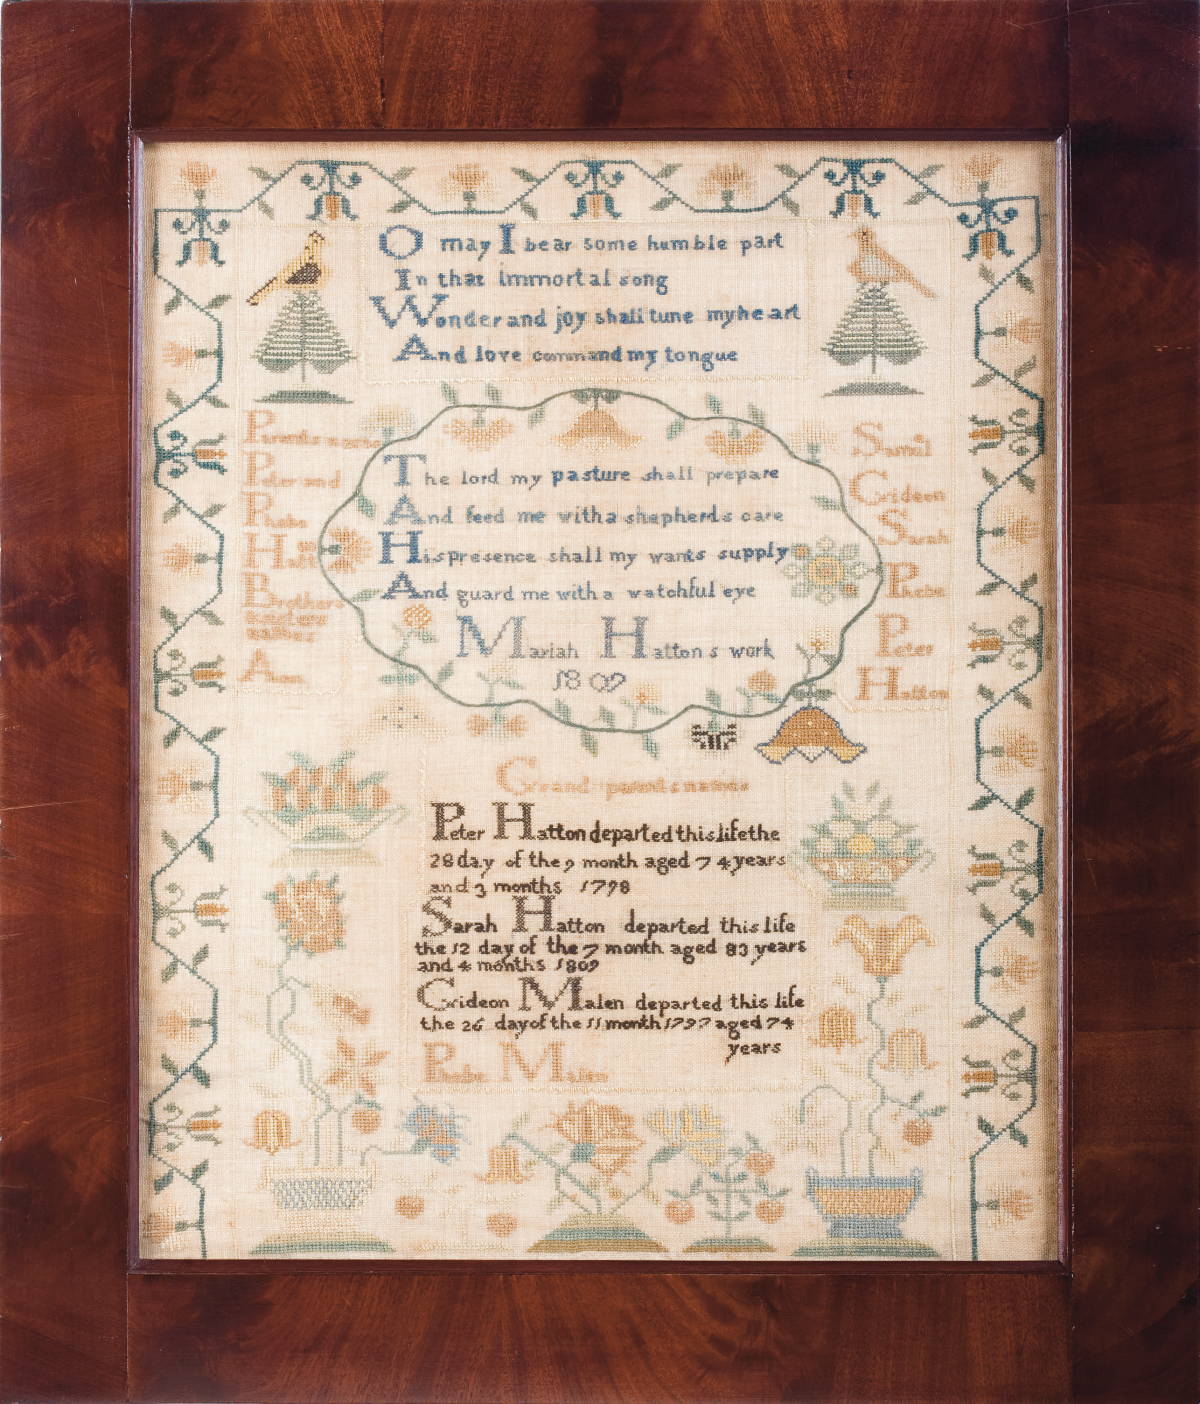 O may I bear some humble part
In that immortal song
Wonder and joy shall tune my heart
And love command my tongue
Parents names
Peter and
Phebe
Hatt
Brothers
sisters
names
Ann
The lord my pasture shall prepare
And feed me with a shepherds care
His presence shall my wants supply
And guard me with a watchful eye
Mariah Hattons work
1809
Saml
Grideon
Sarah
Phebe
Peter
Hatton
Grand parents names
Peter Hatton departed this life the
28 day of the 9 month aged 74 years
and 3 months 1798
Sarah Hatton departed this life
the 12 day of the 7 month aged 83 years
and 4 months 1809
Grideon Malen departed this life
the 26 day of the 11 month 1797 aged 74
years
Phebe Malen